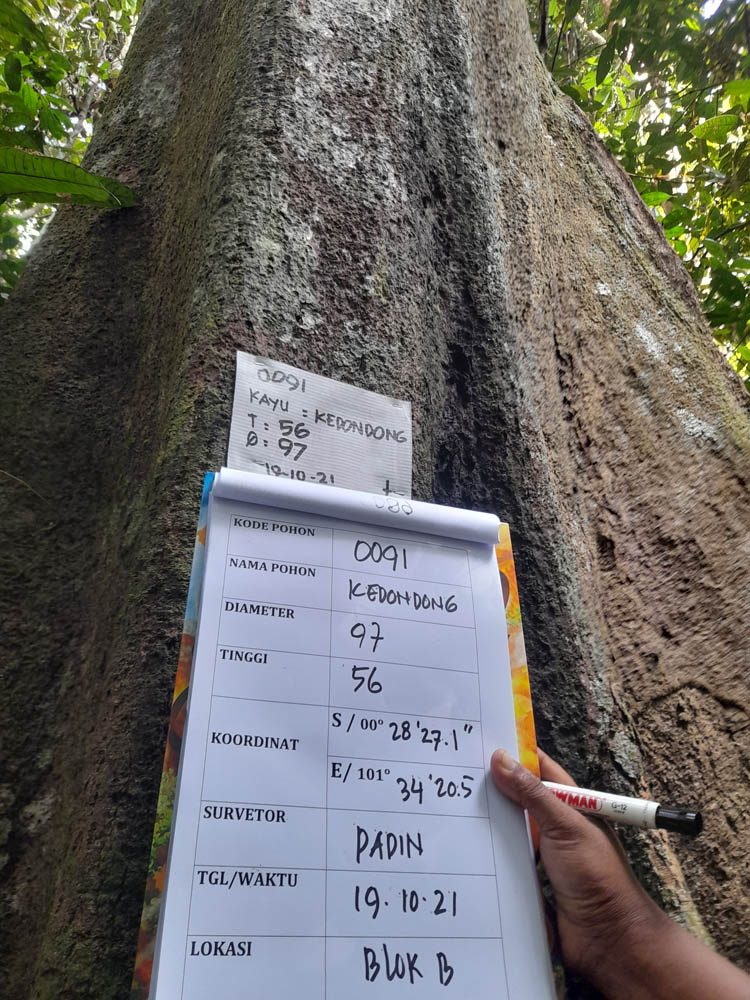 0091
KAYU : KEDONDONG
T : 56
Ø : 97
19-10-21
KODE POHON 0091
NAMA POHON KEDONDONG
DIAMETER 97
TINGGI 56
KOORDINAT S / 00° 28'27.1"
E/ 101° 34'20.5
SURVETOR DADIN
TGL/WAKTU 19.10.21
LOKASI BLOK B
WMAN G-12